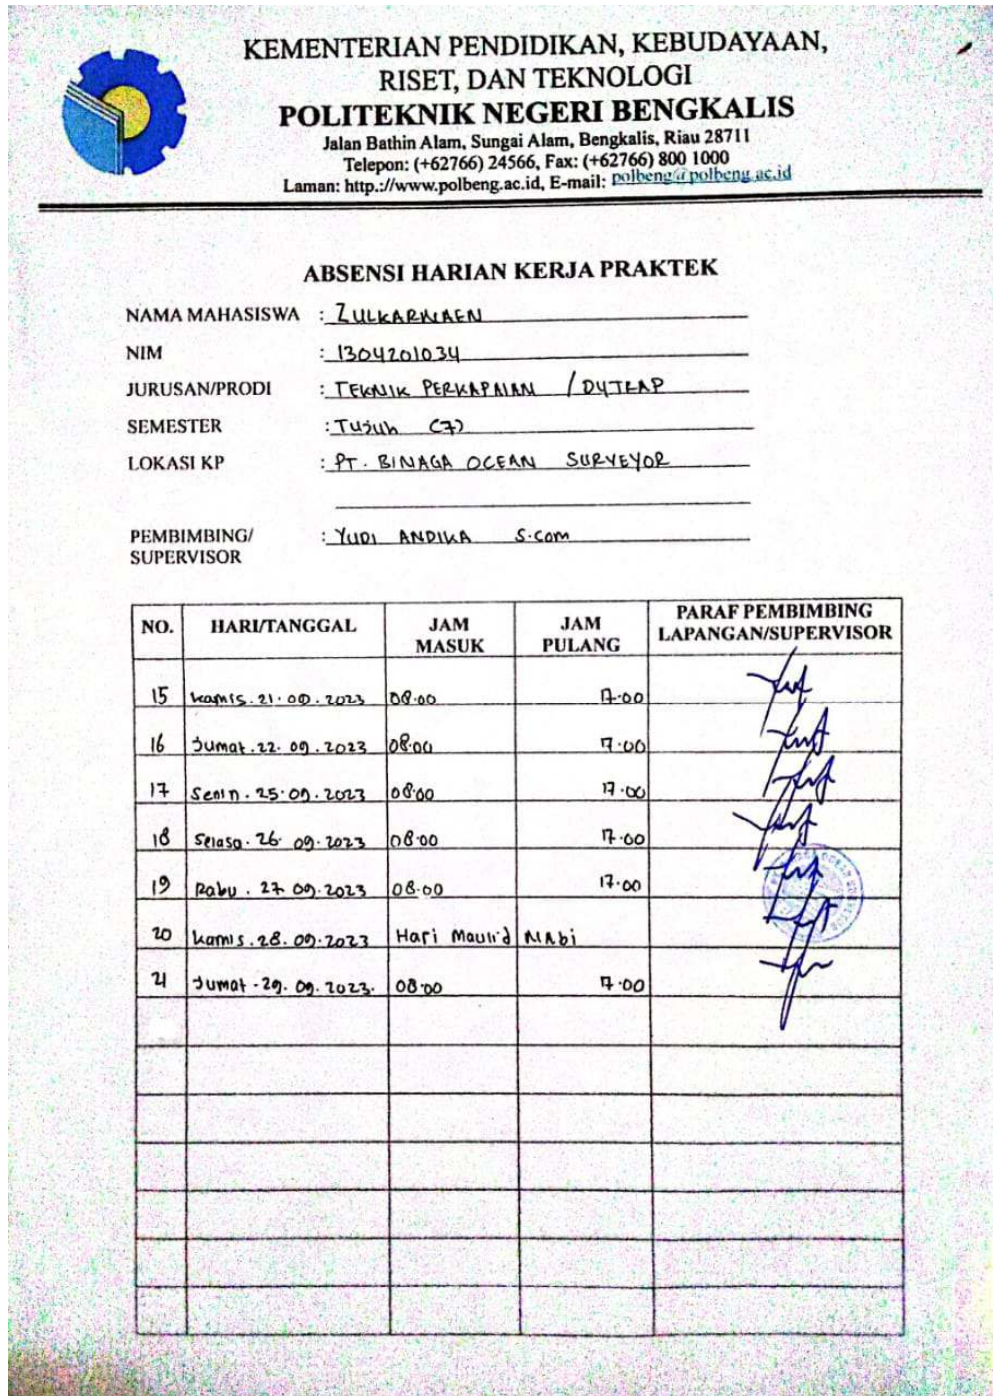 KEMENTERIAN PENDIDIKAN, KEBUDAYAAN,
RISET, DAN TEKNOLOGI
POLITEKNIK NEGERI BENGKALIS
Jalan Bathin Alam, Sungai Alam, Bengkalis, Riau 28711
Telepon: (+62766) 24566, Fax: (+62766) 800 1000
Laman: http.://www.polbeng.ac.id, E-mail: polbeng@polbeng.ac.id
ABSENSI HARIAN KERJA PRAKTEK
NAMA MAHASISWA : ZULKARNAEN
NIM : 1304201034
JURUSAN/PRODI : TEKNIK PERKAPALAN / D4TRAP
SEMESTER : Tujuh (7)
LOKASI KP : PT. BINAGA OCEAN SURVEYOR
PEMBIMBING/ : YUDI ANDIKA S.com
SUPERVISOR
NO. HARI/TANGGAL JAM MASUK JAM PULANG PARAF PEMBIMBING LAPANGAN/SUPERVISOR
15 kamis. 21. 09. 2023 08.00 17.00
16 Jumat. 22. 09. 2023 08.00 17.00
17 Senin. 25. 09. 2023 08.00 17.00
18 Selasa. 26. 09. 2023 08.00 17.00
19 Rabu. 27 09. 2023 08.00 17.00
20 kamis. 28. 09. 2023 Hari Maulid Nabi
21 Jumat. 29. 09. 2023. 08.00 17.00